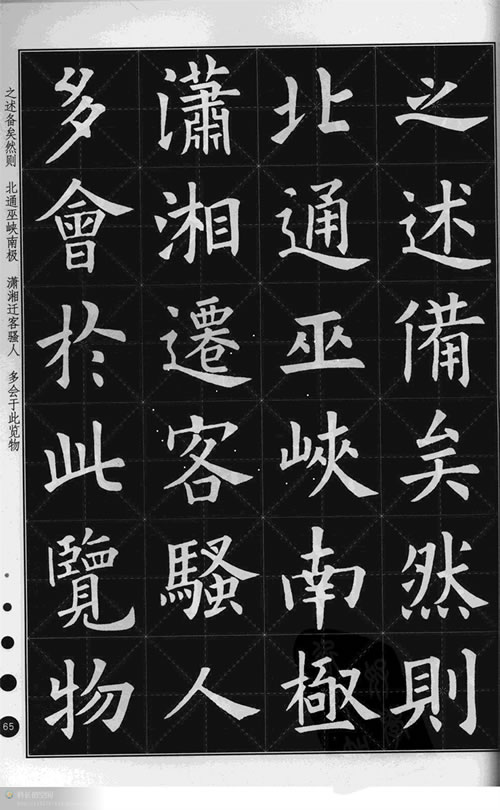 之述備矣然則
北通巫峽南極
瀟湘遷客騷人
多會於此覽物
之述备矣然则 北通巫峡南极 潇湘迁客骚人 多会于此览物
65